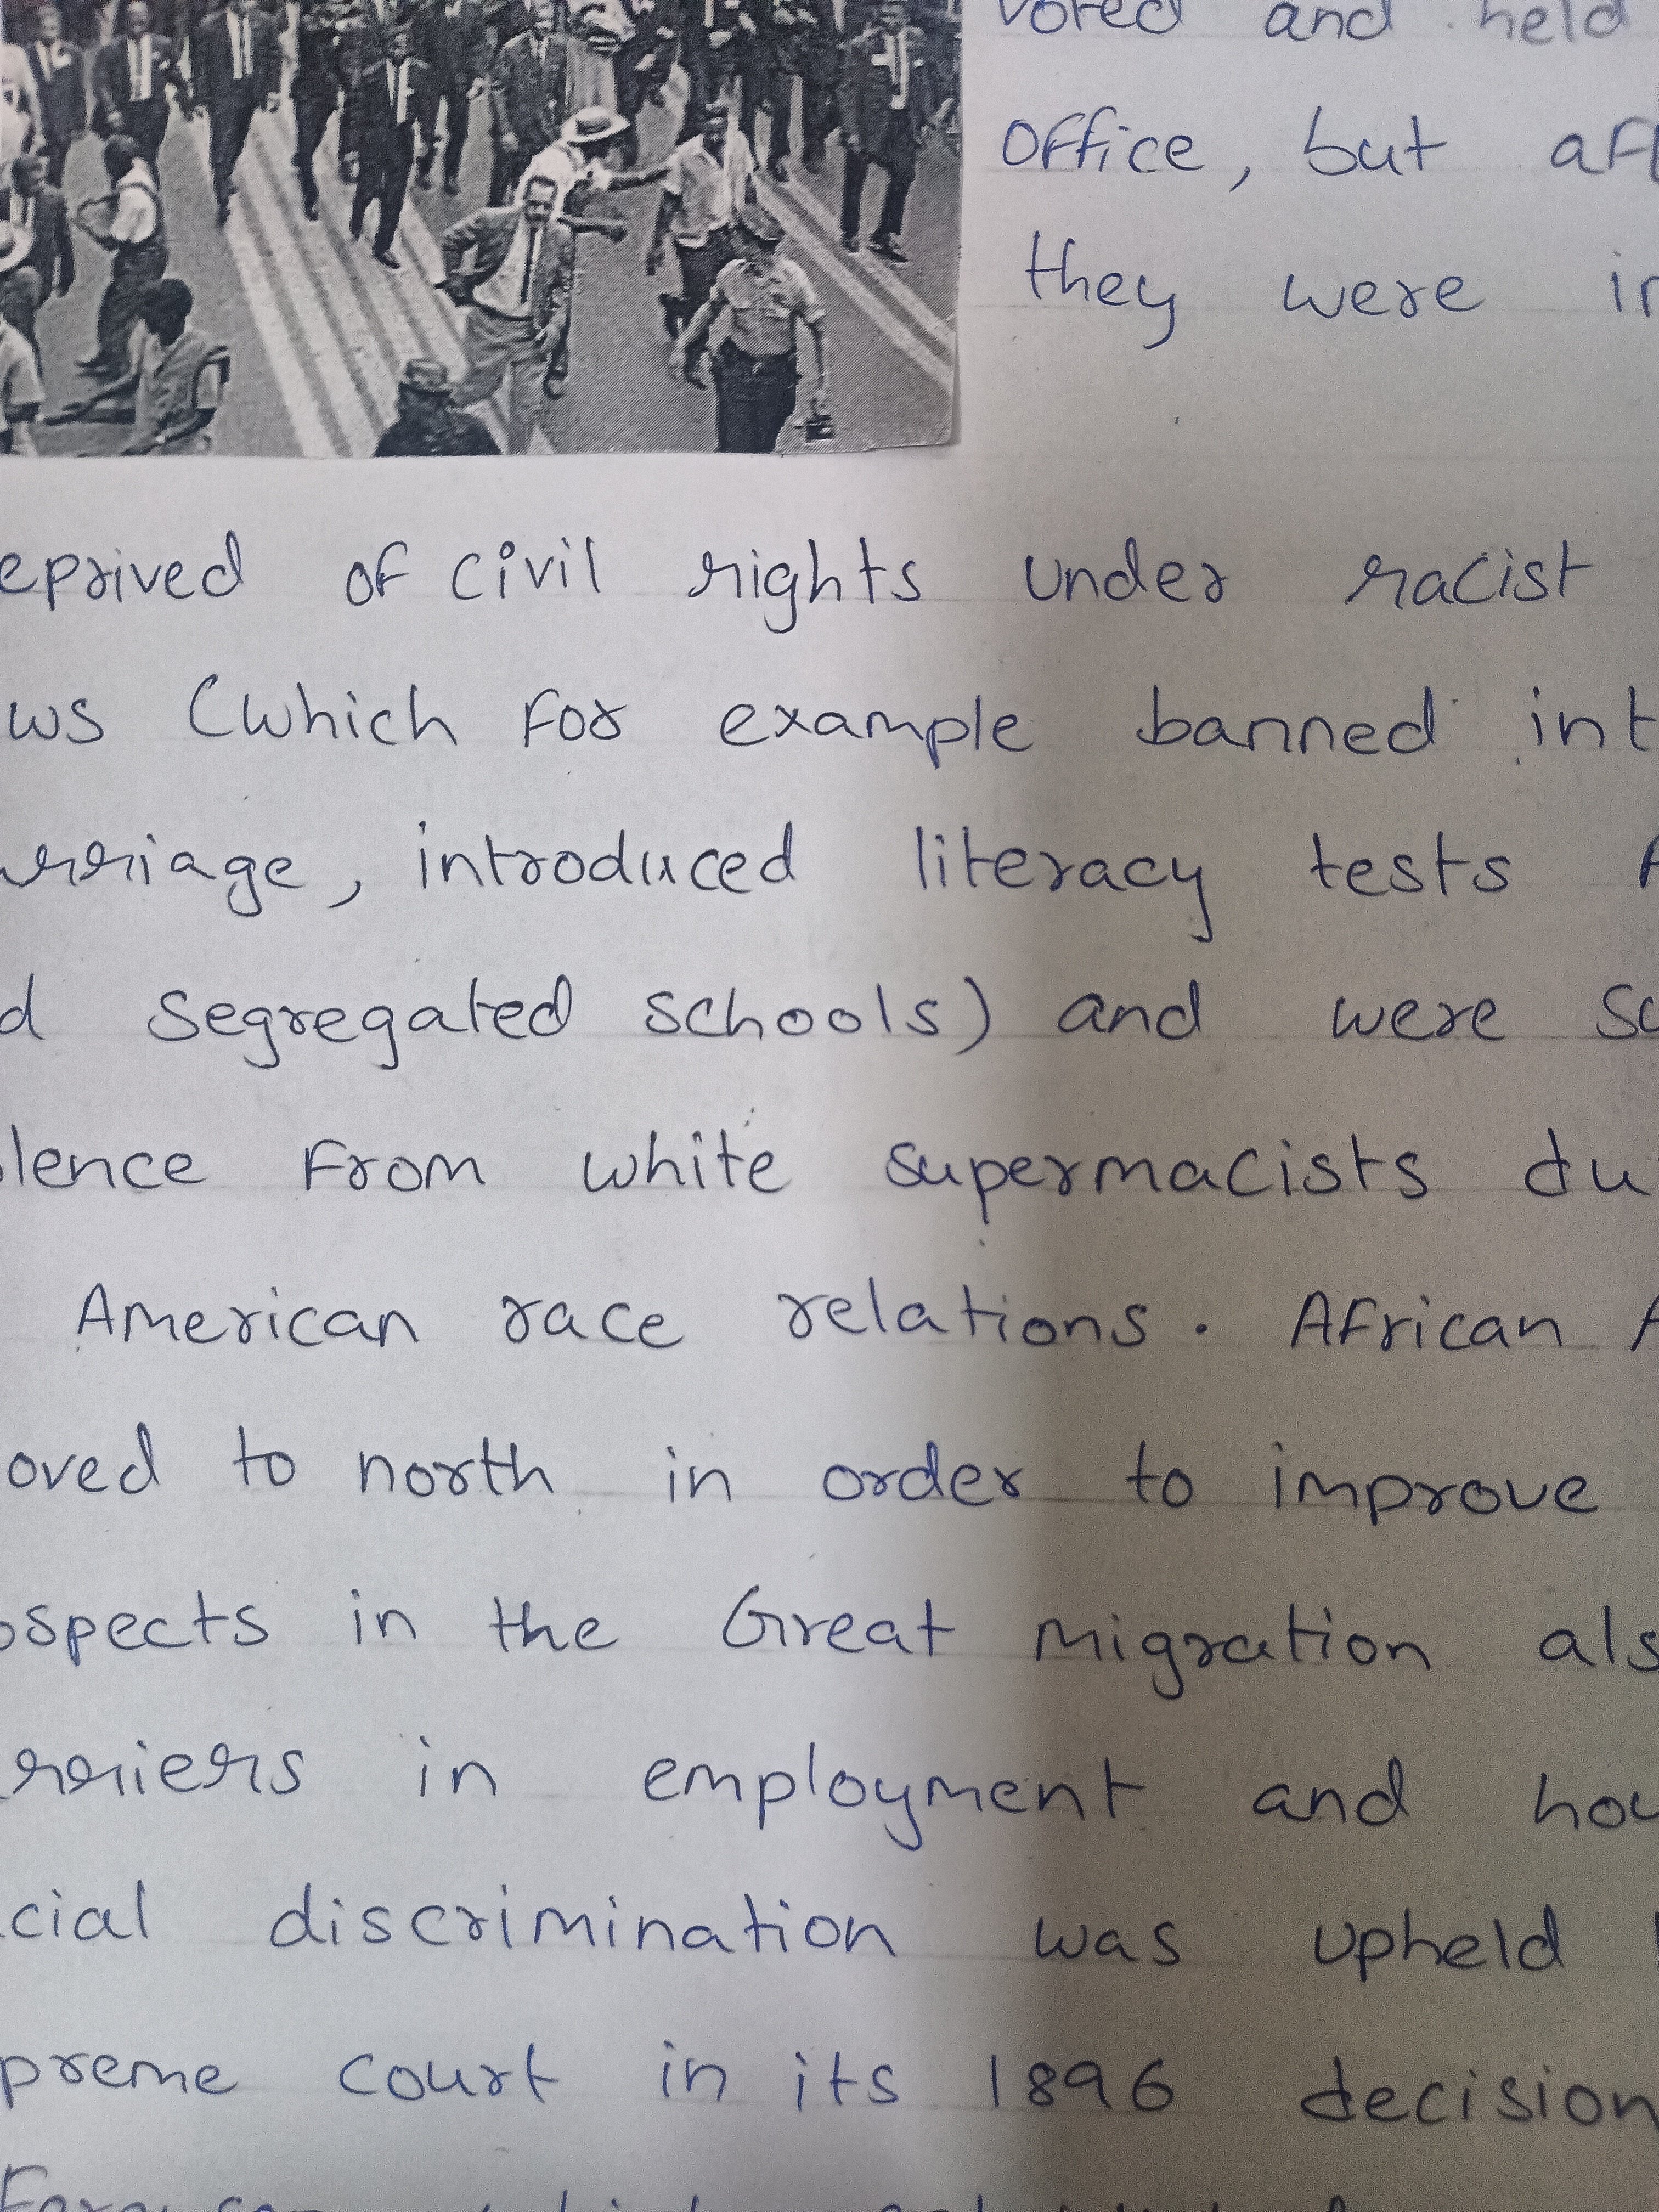 voted and held
office, but af
they were in
eprived of civil rights under racist
ws (which for example banned int
arriage, introduced literacy tests
d segregated schools) and were su
lence from white supermacists du
American race relations. African A
oved to north in order to improve
ospects in the Great Migration als
arriers in employment and hou
cial discrimination was upheld
preme court in its 1896 decision